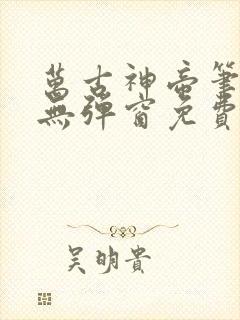 萬古神帝筆
無彈窗免費
吳明貴